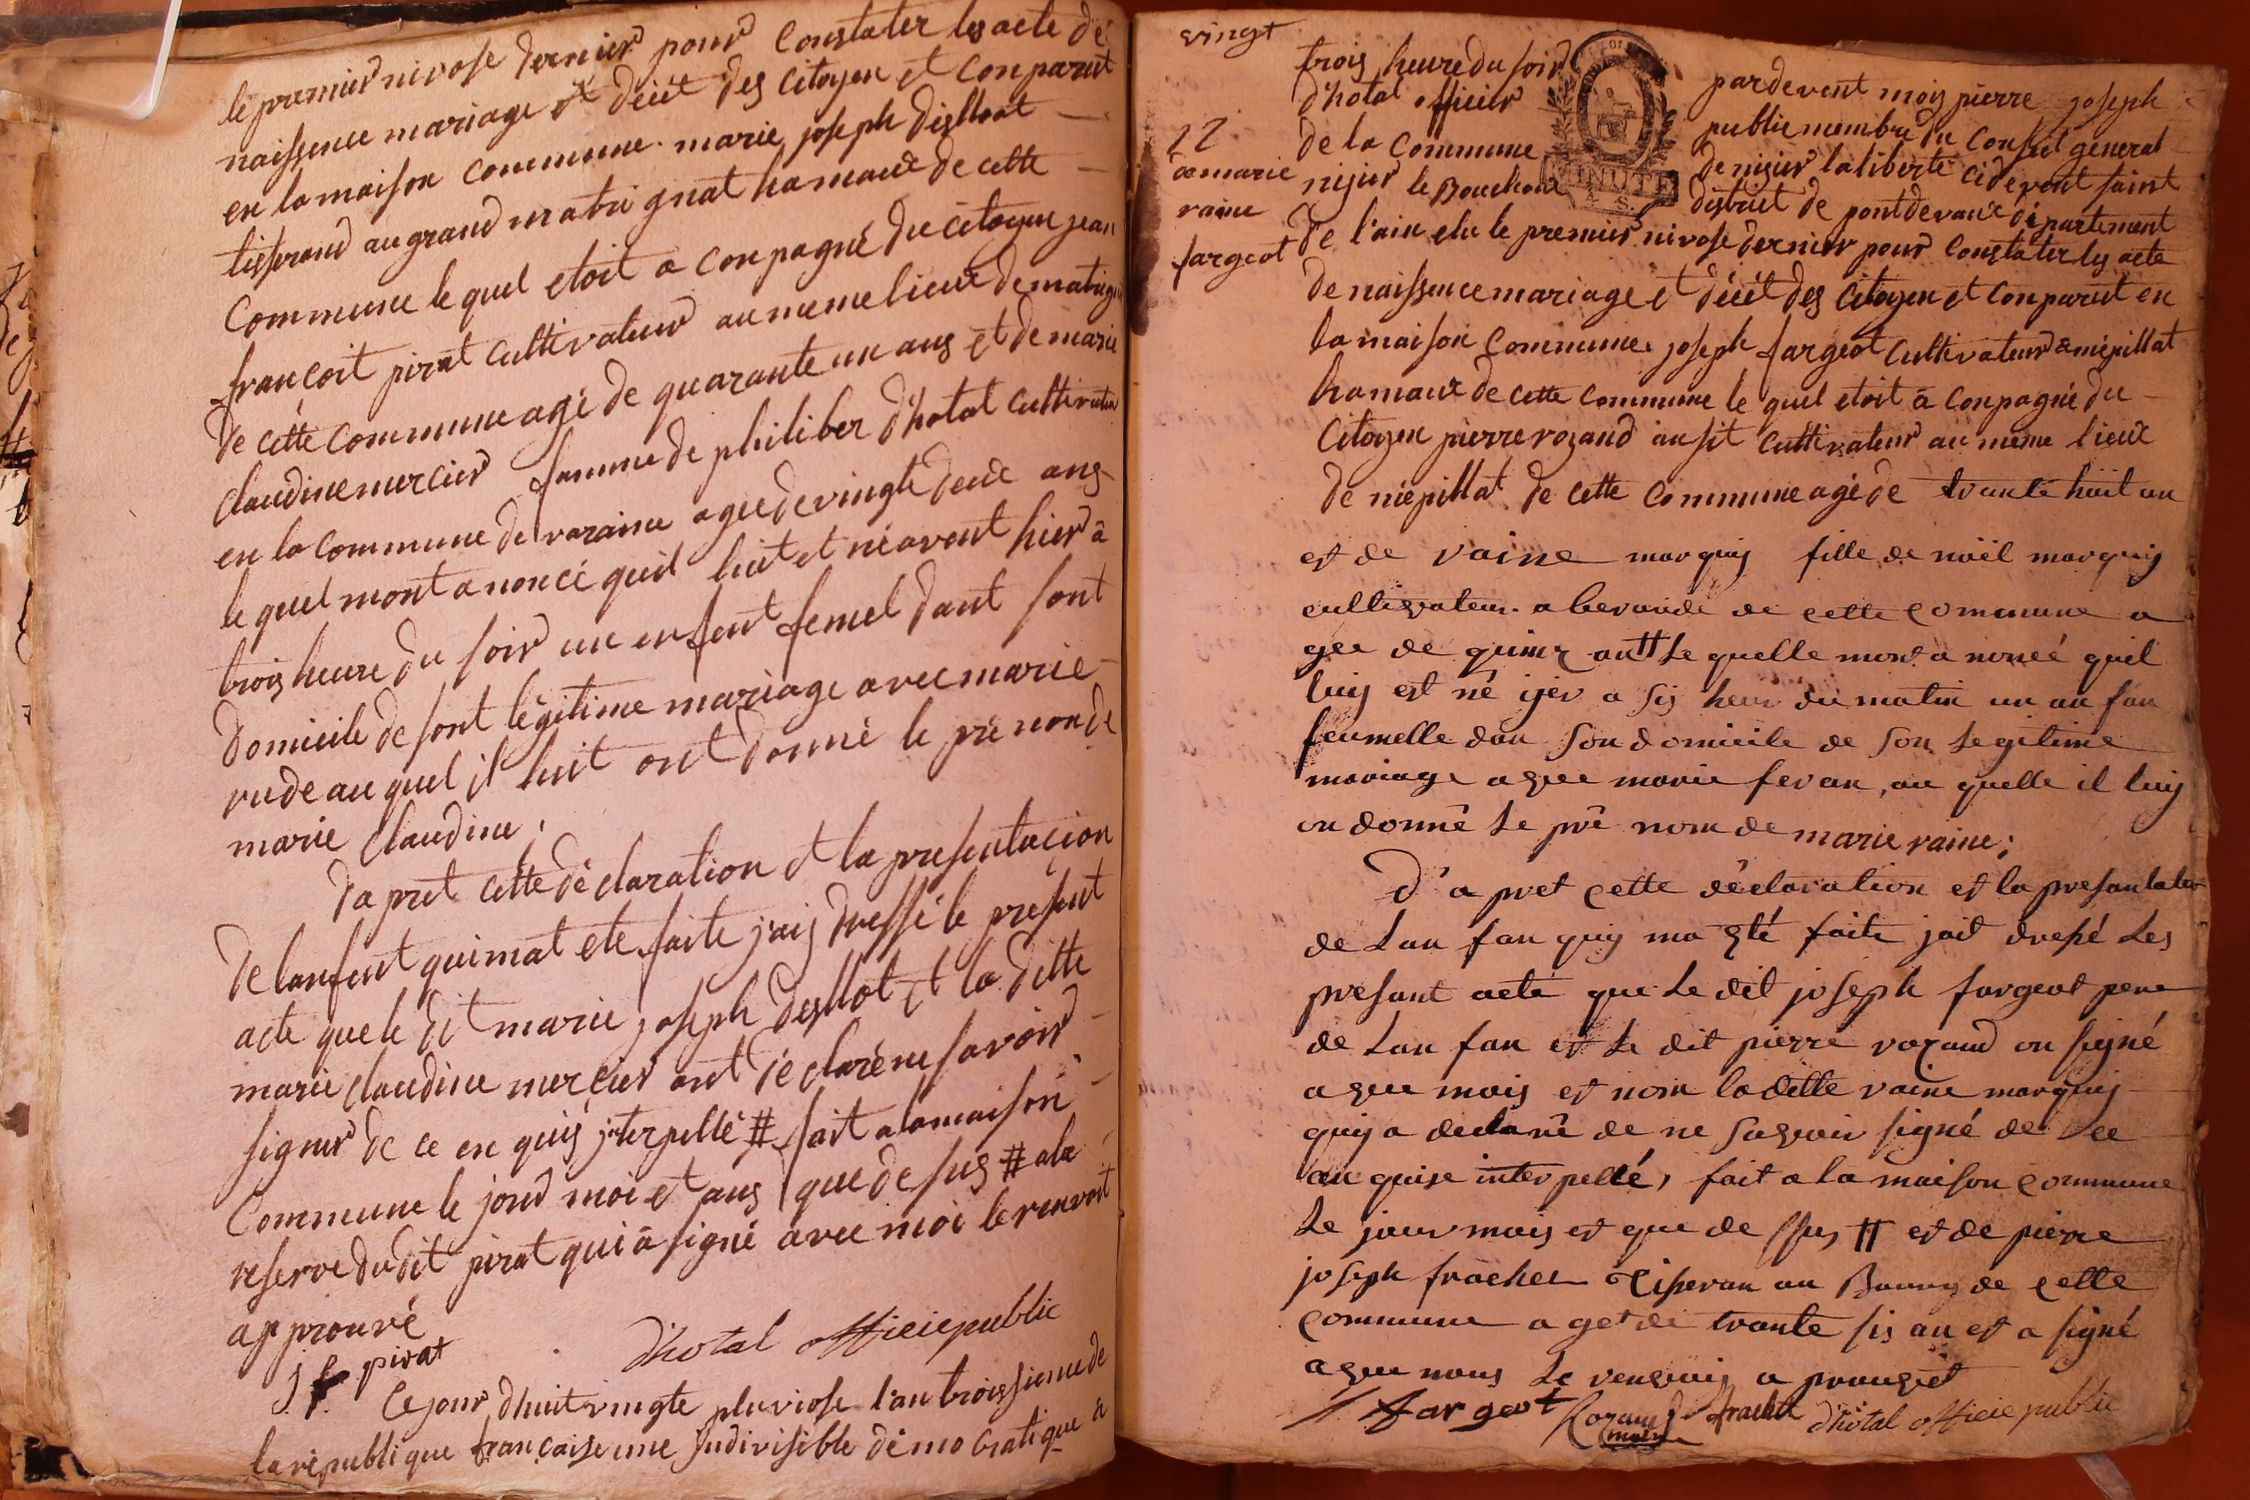 le premier nivose dernier pour constater les acte de
naissence mariage et décèt des citoyen et conparut
en la maison commune. marie joseph desllot
tisserand au grand matignat hamaux de cette
commune le quel etoit a conpagné du citoyen jean
françoit pirat cultivateur au meme lieux de matig
de cétte commune agé de quarante un ans et de marie
claudine mercier famme de philiber d'hotal cultivateu
en la commune de varaine agee de vingte deux ans
le quel mont anoncé queil luit et né avent hier à
trois heure du soir un enfent femel dant sont
domicile de sont légitime mariage avec marie
rude au quel il luit ont donné le prénon de
marie claudine;
d'apret cette déclaration et la presentacion
de lanfent qui mat ete faite j'ais dressé le présent
acte que le dit marie joseph desllot et la ditte
marie claudine mercier ont déclaré ne savoir
signer de ce en quis jnterpellé # fait a la maison
commune le jour moi et ans que de sus # a la
reserve du dit pirat qui à signé avec moi le renvoit
approuvé
J f pirat
d'hotal officie public
Cejour d'huit vingte pluviose l'an troissieme de
la république française une jndivisible démocratique a
vingt
trois heure du soir pardevent mois pierre joseph
d'hotal officier public membre du conseil general
de la commune de nisier la liberté cidevent saint
nisier le Bouchoux district de pontdevaux département
MINUTE
22
de marie
raine
fargeot
de l'ain elu le premier nivose dernier pour constater les acte
de naissence mariage et décèt des citoyen et conparut en
la maison commune joseph fargeot cultivateur a niépillat
hamaux de cette commune le quel etoit à conpagné du
citoyen pierre rozand ausit cultivateur au meme lieux
de niépillat de cette commune agé de trante huit an
et de raine marquis fille de noël marquis
cultivateur a beraude de cette commune a
gee de quinz an # Le quelle mont a noncé quil
luy est né ijer a sis heur du matin un an fan
feumelle dan son domicile de son Legitime
mariage avec marie fevan, au quelle il luy
on donné Le pré nom de marie raine;
D'a pret cette déclaration et la presantation
de Lan fan quy ma été faite jait dressé Les
présant acte que Le dit joseph fargeot pere
de Lan fan et Le dit pierre rozand on signé
avec mois et nom la ditte raine marquis
quy a declaré de ne savoir signé de Cee
an quise interpellé, fait a la maison commune
Le jour mois et que de ssus # et de pierre
joseph frachet Tisseran au Bourg de cette
commune a get de trante sis an et a signé
avec nous Le renvois a prouvet
J fargeot Rozand frachet d'hotal officie public